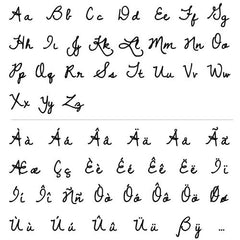 Aa Bb Cc Dd Ee Ff Gg
Hh Ii Jj Kk Ll Mm Nn Oo
Pp Qq Rr Ss Tt Uu Vv Ww
Xx Yy Zz
Àà Áá Ââ Ää Åå Ãã
Ææ Çç Èè Éé Êê Ëë Ìì
Íí Îï Ññ Òò Óó Ôô Öö Øø
Ùù Úú Ûû Üü ßÿ ...